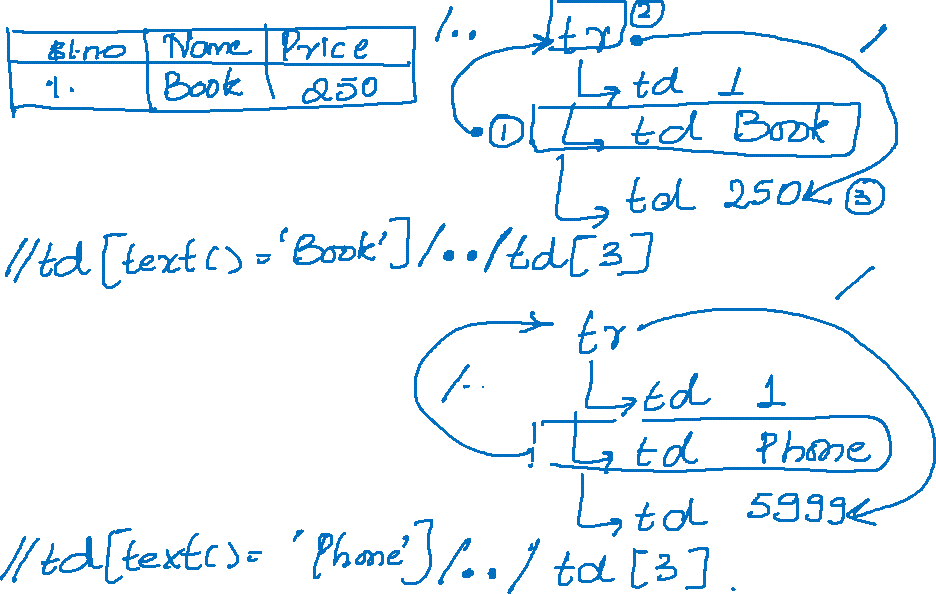 Sl.no Name Price
1. Book 250
/.. tr ② /
td 1
① td Book
td 250 ③
//td[text()='Book']/../td[3]
/
tr
/..
td 1
td Phone
td 5999
//td[text()='Phone']/../td[3].